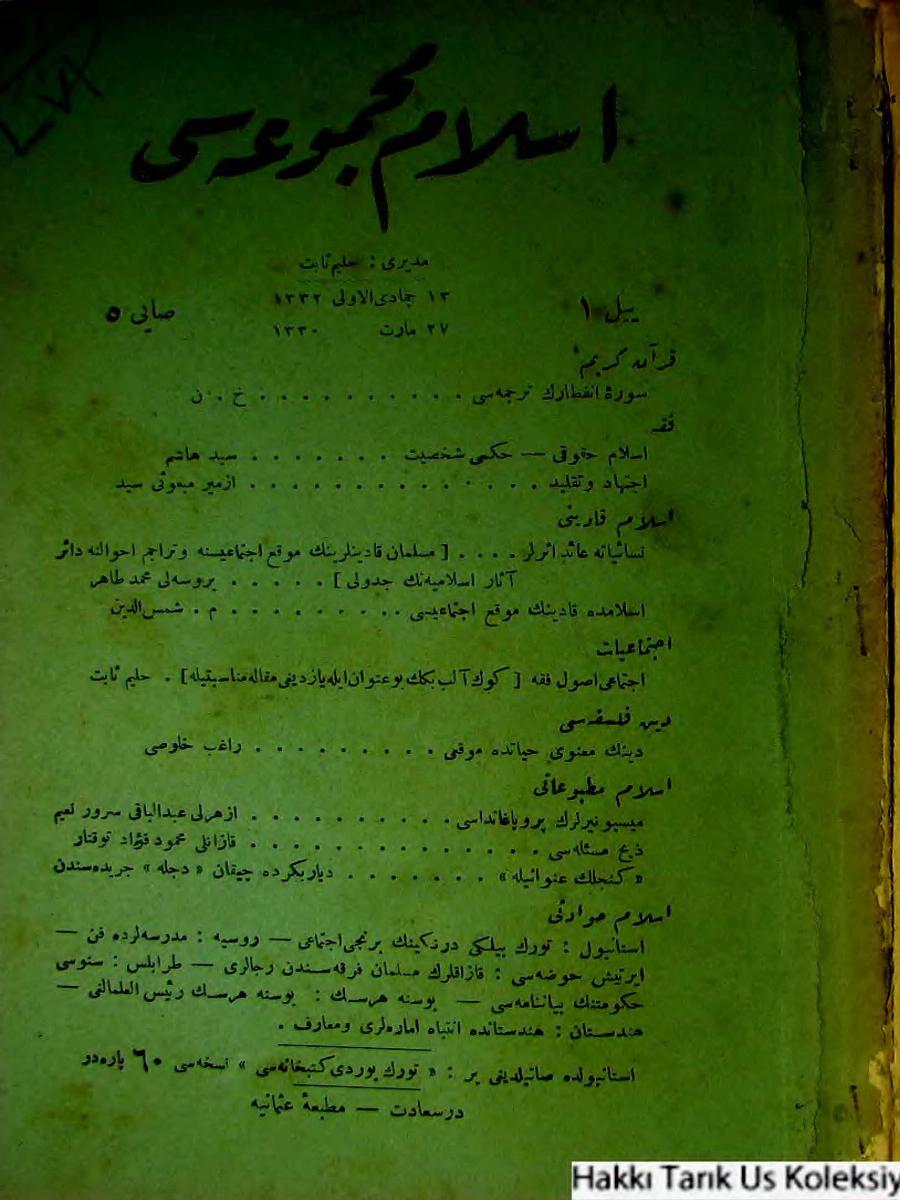 اسلام مجموعه‌سی
مدیری : حلیم ثابت
ییل ١
١٣ جمادی‌الاولی ١٣٣٢
٢٧ مارت ١٣٣٠
صایی ٥
قرآن کریم
سورۀ انفطارك ترجمه‌سی . . . . . . . . . . خ . ن
فقه
اسلام حقوقی — حکمی شخصیت . . . . . . . سید هاشم
اجتهاد و تقلید . . . . . . . . . . . . . . ازمیر مبعوثی سید
اسلام قادینی
نسائیاته عائد اثرلر . . . . [ مسلمان قادینلرینك موقع اجتماعیسنه و تراجم احوالنه دائر
آثار اسلامیه‌نك جدولی ] . . . . . بروسه‌لی محمد طاهر
اسلامده قادینك موقع اجتماعیسی . . . . . . . . . م . شمس‌الدین
اجتماعیات
اجتماعی اصول فقه [ کوك آلب بكك بو عنوان ایله یازدیغی مقاله مناسبتیله ] . حلیم ثابت
دین فلسفه‌سی
دینك معنوی حیاتده موقعی . . . . . . . . . راغب خلوصی
اسلام مطبوعاتی
میسیونیرلرك پروپاغانداسی . . . . . . . . . . ازهرلی عبدالباقی سرور نعیم
ذبح مسئله‌سی . . . . . . . . . . . . . . قازانلی محمود فؤاد توقتار
« کنجلك عنوانیله » . . . . . . . دیاربکرده چیقان « دجله » جریده‌سندن
اسلام حوادثی
استانبول : تورك بیلکی درنکینك برنجی اجتماعی — روسیه : مدرسه‌لرده فن —
ایرتیش حوضه‌سی : قازاقلرك مسلمان فرقه‌سندن رجالری — طرابلس : سنوسی
حکومتنك بیاننامه‌سی — بوسنه هرسك : بوسنه هرسك رئیس العلمالغی —
هندستان : هندستانده انتباه اماره‌لری و معارف .
استانبولده صاتیلدیغی یر : « تورك یوردی کتبخانه‌سی » نسخه‌سی ٦٠ پاره‌در
درسعادت — مطبعۀ عثمانیه
Hakkı Tarık Us Koleksiy